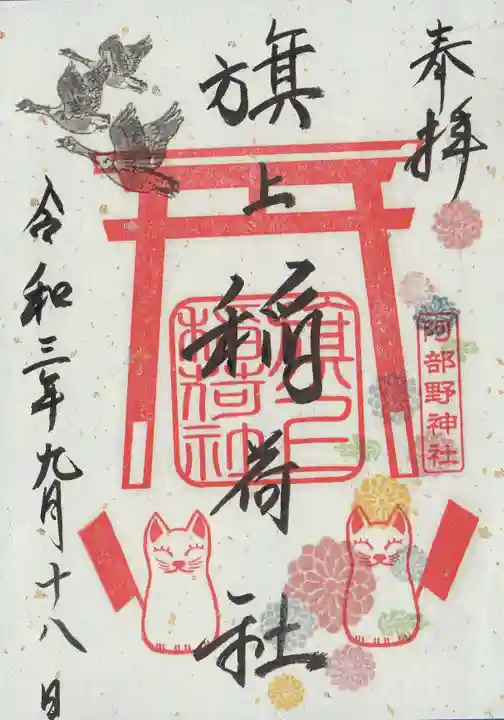 奉拝
阿部野神社
旗上稲荷社
旗上
稲荷神
令和三年九月十八日